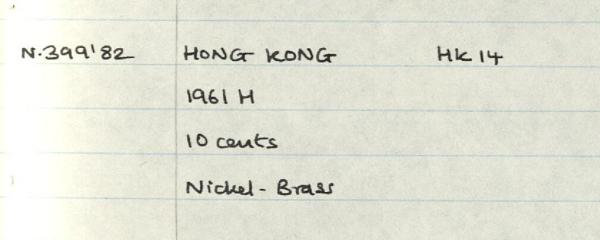 N.399'82 HONG KONG HK 14
1961 H
10 cents
Nickel - Brass